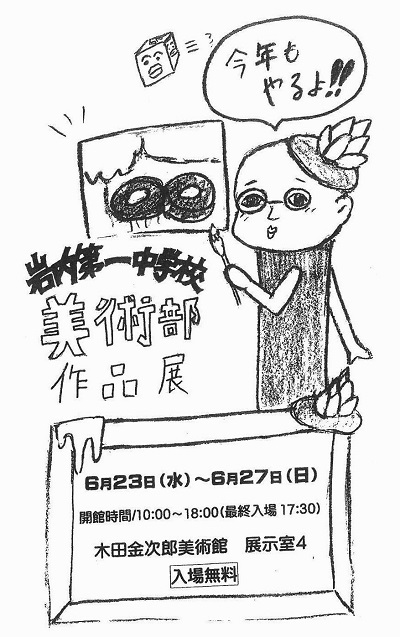 今年も
やるよ!!
岩内第一中学校
美術部
作品展
6月23日(水)～6月27日(日)
開館時間/10:00～18:00(最終入場 17:30)
木田金次郎美術館　展示室4
入場無料